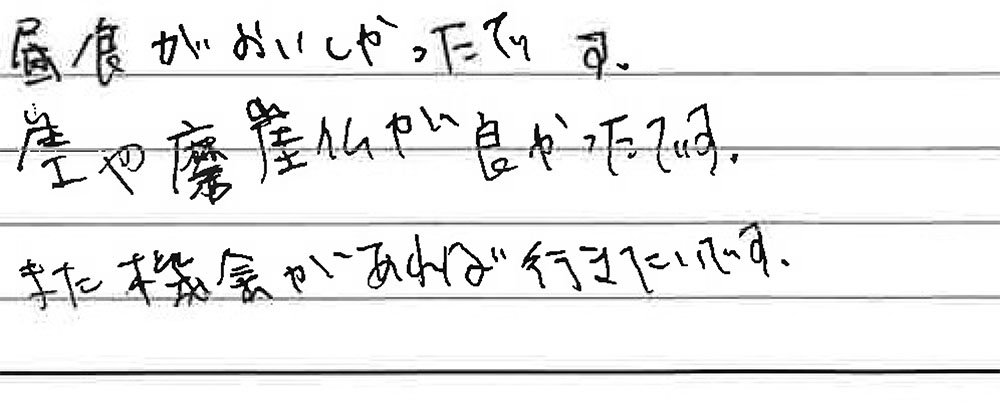 昼食がおいしかったです。
崖や磨崖仏が良かったです。
また機会があれば行きたいです。